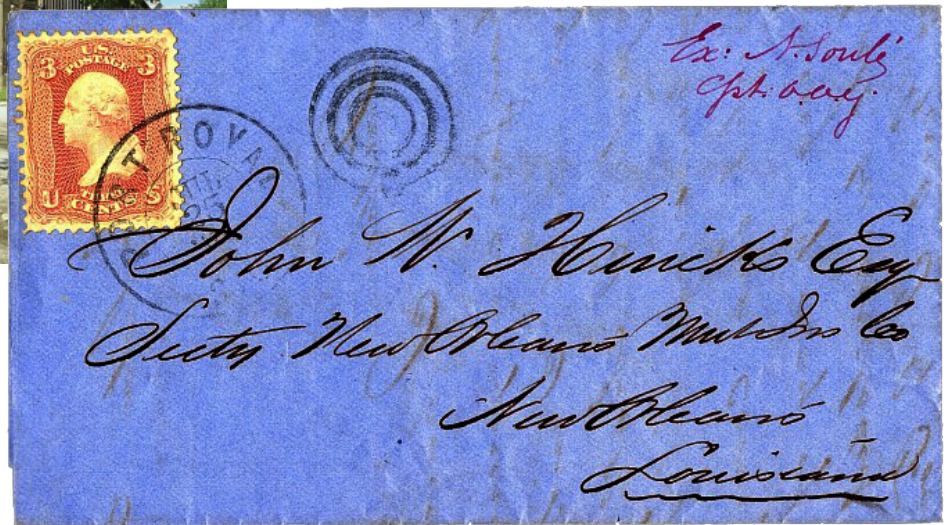 3 U.S. 3
POSTAGE
U THREE S
CENTS
RT ROYA
JUL
Ex: N. Soulé
John W. Hincks Esq
Secty New Orleans Mut Ins Co
New Orleans
Louisiana